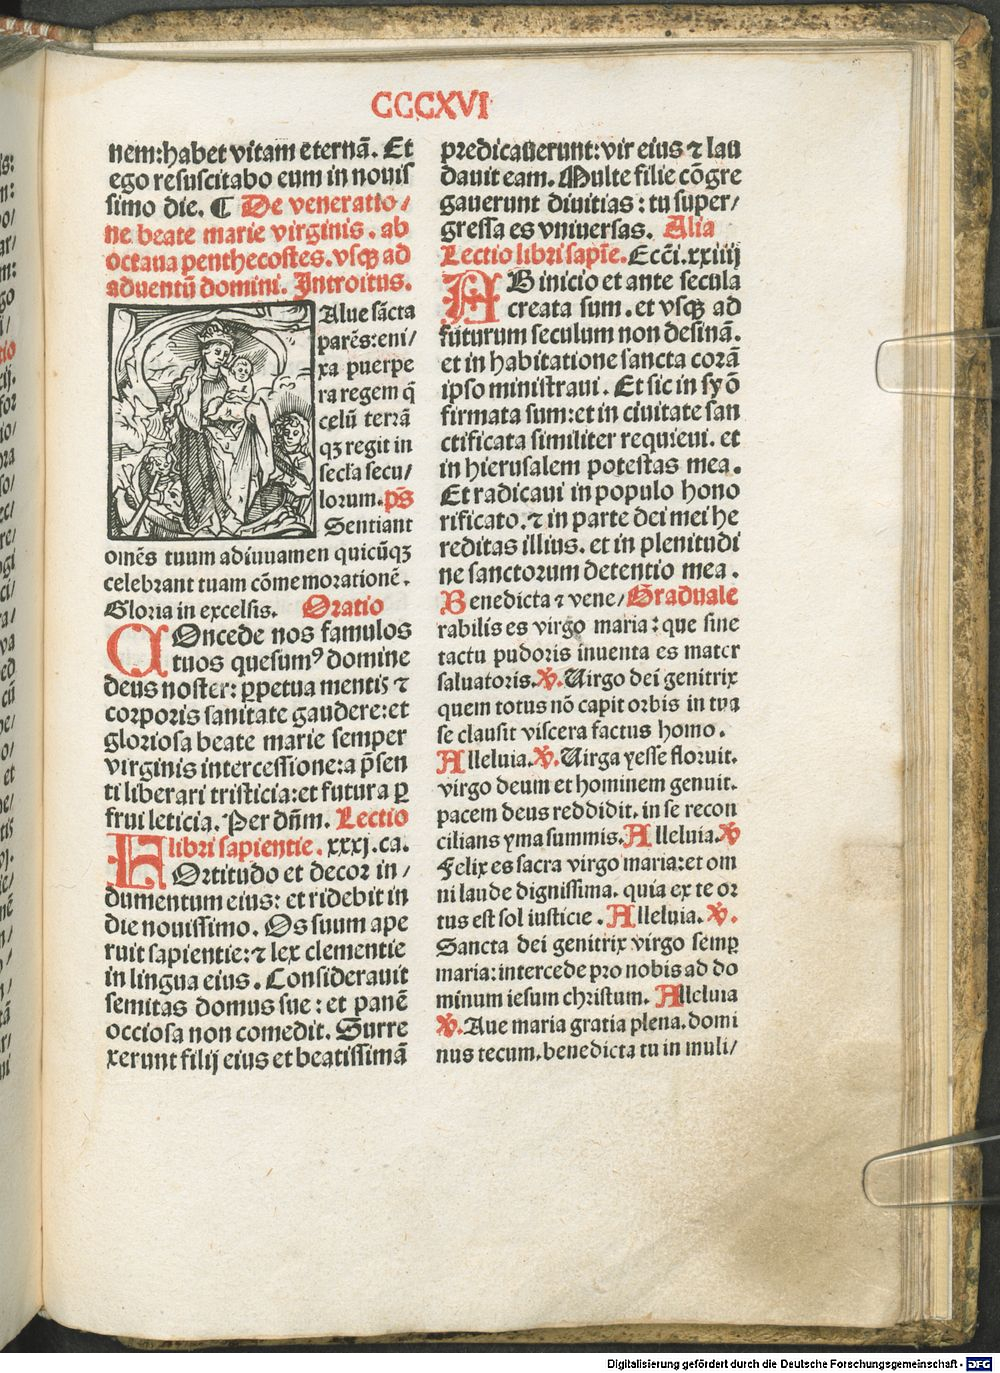 CCCXVI
nem:habet vitam eternā. Et
ego resuscitabo eum in nouis
simo die. ¶ De veneratio/
ne beate marie virginis. ab
octaua penthecostes. vsqꝫ ad
aduentū domini. Introitus.
Alue sācta
parēs:eni/
xa puerpe
ra regem q̄
celū terrā
qꝫ regit in
secl'a secu/
lorum. p̄s
Sentiant
om̄es tuum adiuuamen quicūqꝫ
celebrant tuam cōmemorationē.
Gloria in excelsis. Oratio
COncede nos famulos
tuos quesumꝰ domine
deus noster: ꝑpetua mentis ⁊
corporis sanitate gaudere:et
gloriosa beate marie semper
virginis intercessione:a p̄sen
ti liberari tristicia:et futura ꝑ
frui leticia. Per dn̄m. Lectio
libri sapientie. xxxj. ca.
FOrtitudo et decor in/
dumentum eius: et ridebit in
die nouissimo. Os suum ape
ruit sapientie:⁊ lex clementie
in lingua eius. Considerauit
semitas domus sue: et panē
occiosa non comedit. Surre
xerunt filij eius et beatissimā
predicauerunt:vir eius ⁊ lau
dauit eam. Multe filie cōgre
gauerunt diuitias: tu super/
gressa es vniuersas. Alia
Lectio libri sapiē. Eccī. xxiiij
AB inicio et ante secula
creata sum. et vsqꝫ ad
futurum seculum non desinā.
et in habitatione sancta corā
ipso ministraui. Et sic in syō
firmata sum:et in ciuitate san
ctificata similiter requieui. et
in hierusalem potestas mea.
Et radicaui in populo hono
rificato. ⁊ in parte dei mei he
reditas illius. et in plenitudi
ne sanctorum detentio mea.
Benedicta ⁊ vene/ Graduale
rabilis es virgo maria: que sine
tactu pudoris inuenta es mater
saluatoris. ℣. Uirgo dei genitrix
quem totus nō capit orbis in tua
se clausit viscera factus homo.
Alleluia. ℣. Uirga yesse floruit.
virgo deum et hominem genuit.
pacem deus reddidit. in se recon
cilians yma summis. Alleluia. ℣
Felix es sacra virgo maria:et om
ni laude dignissima. quia ex te or
tus est sol iusticie. Alleluia. ℣.
Sancta dei genitrix virgo semꝑ
maria:intercede pro nobis ad do
minum iesum christum. Alleluia
℣. Aue maria gratia plena. domi
nus tecum. benedicta tu in muli/
Digitalisierung gefördert durch die Deutsche Forschungsgemeinschaft - DFG